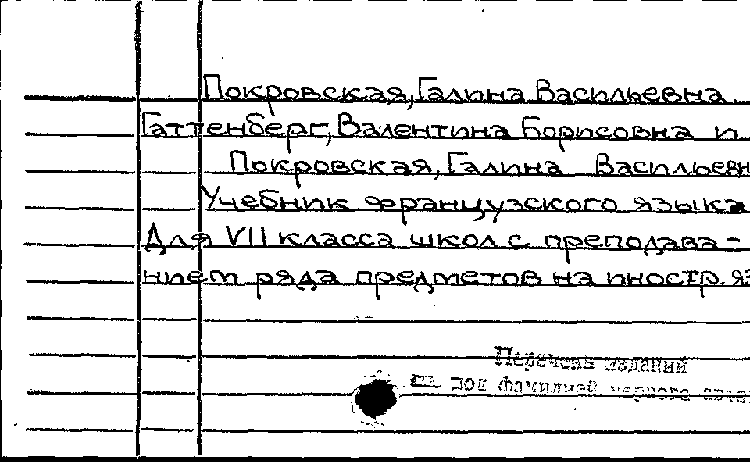 Покровская, Галина Васильевна
Гаттенберг, Валентина Борисовна и
Покровская, Галина Васильевн
Учебник французского языка
Для VII класса школ с препода-
нием ряда предметов на иностр. яз
Перечень изданий
см. под фамилией первого автор